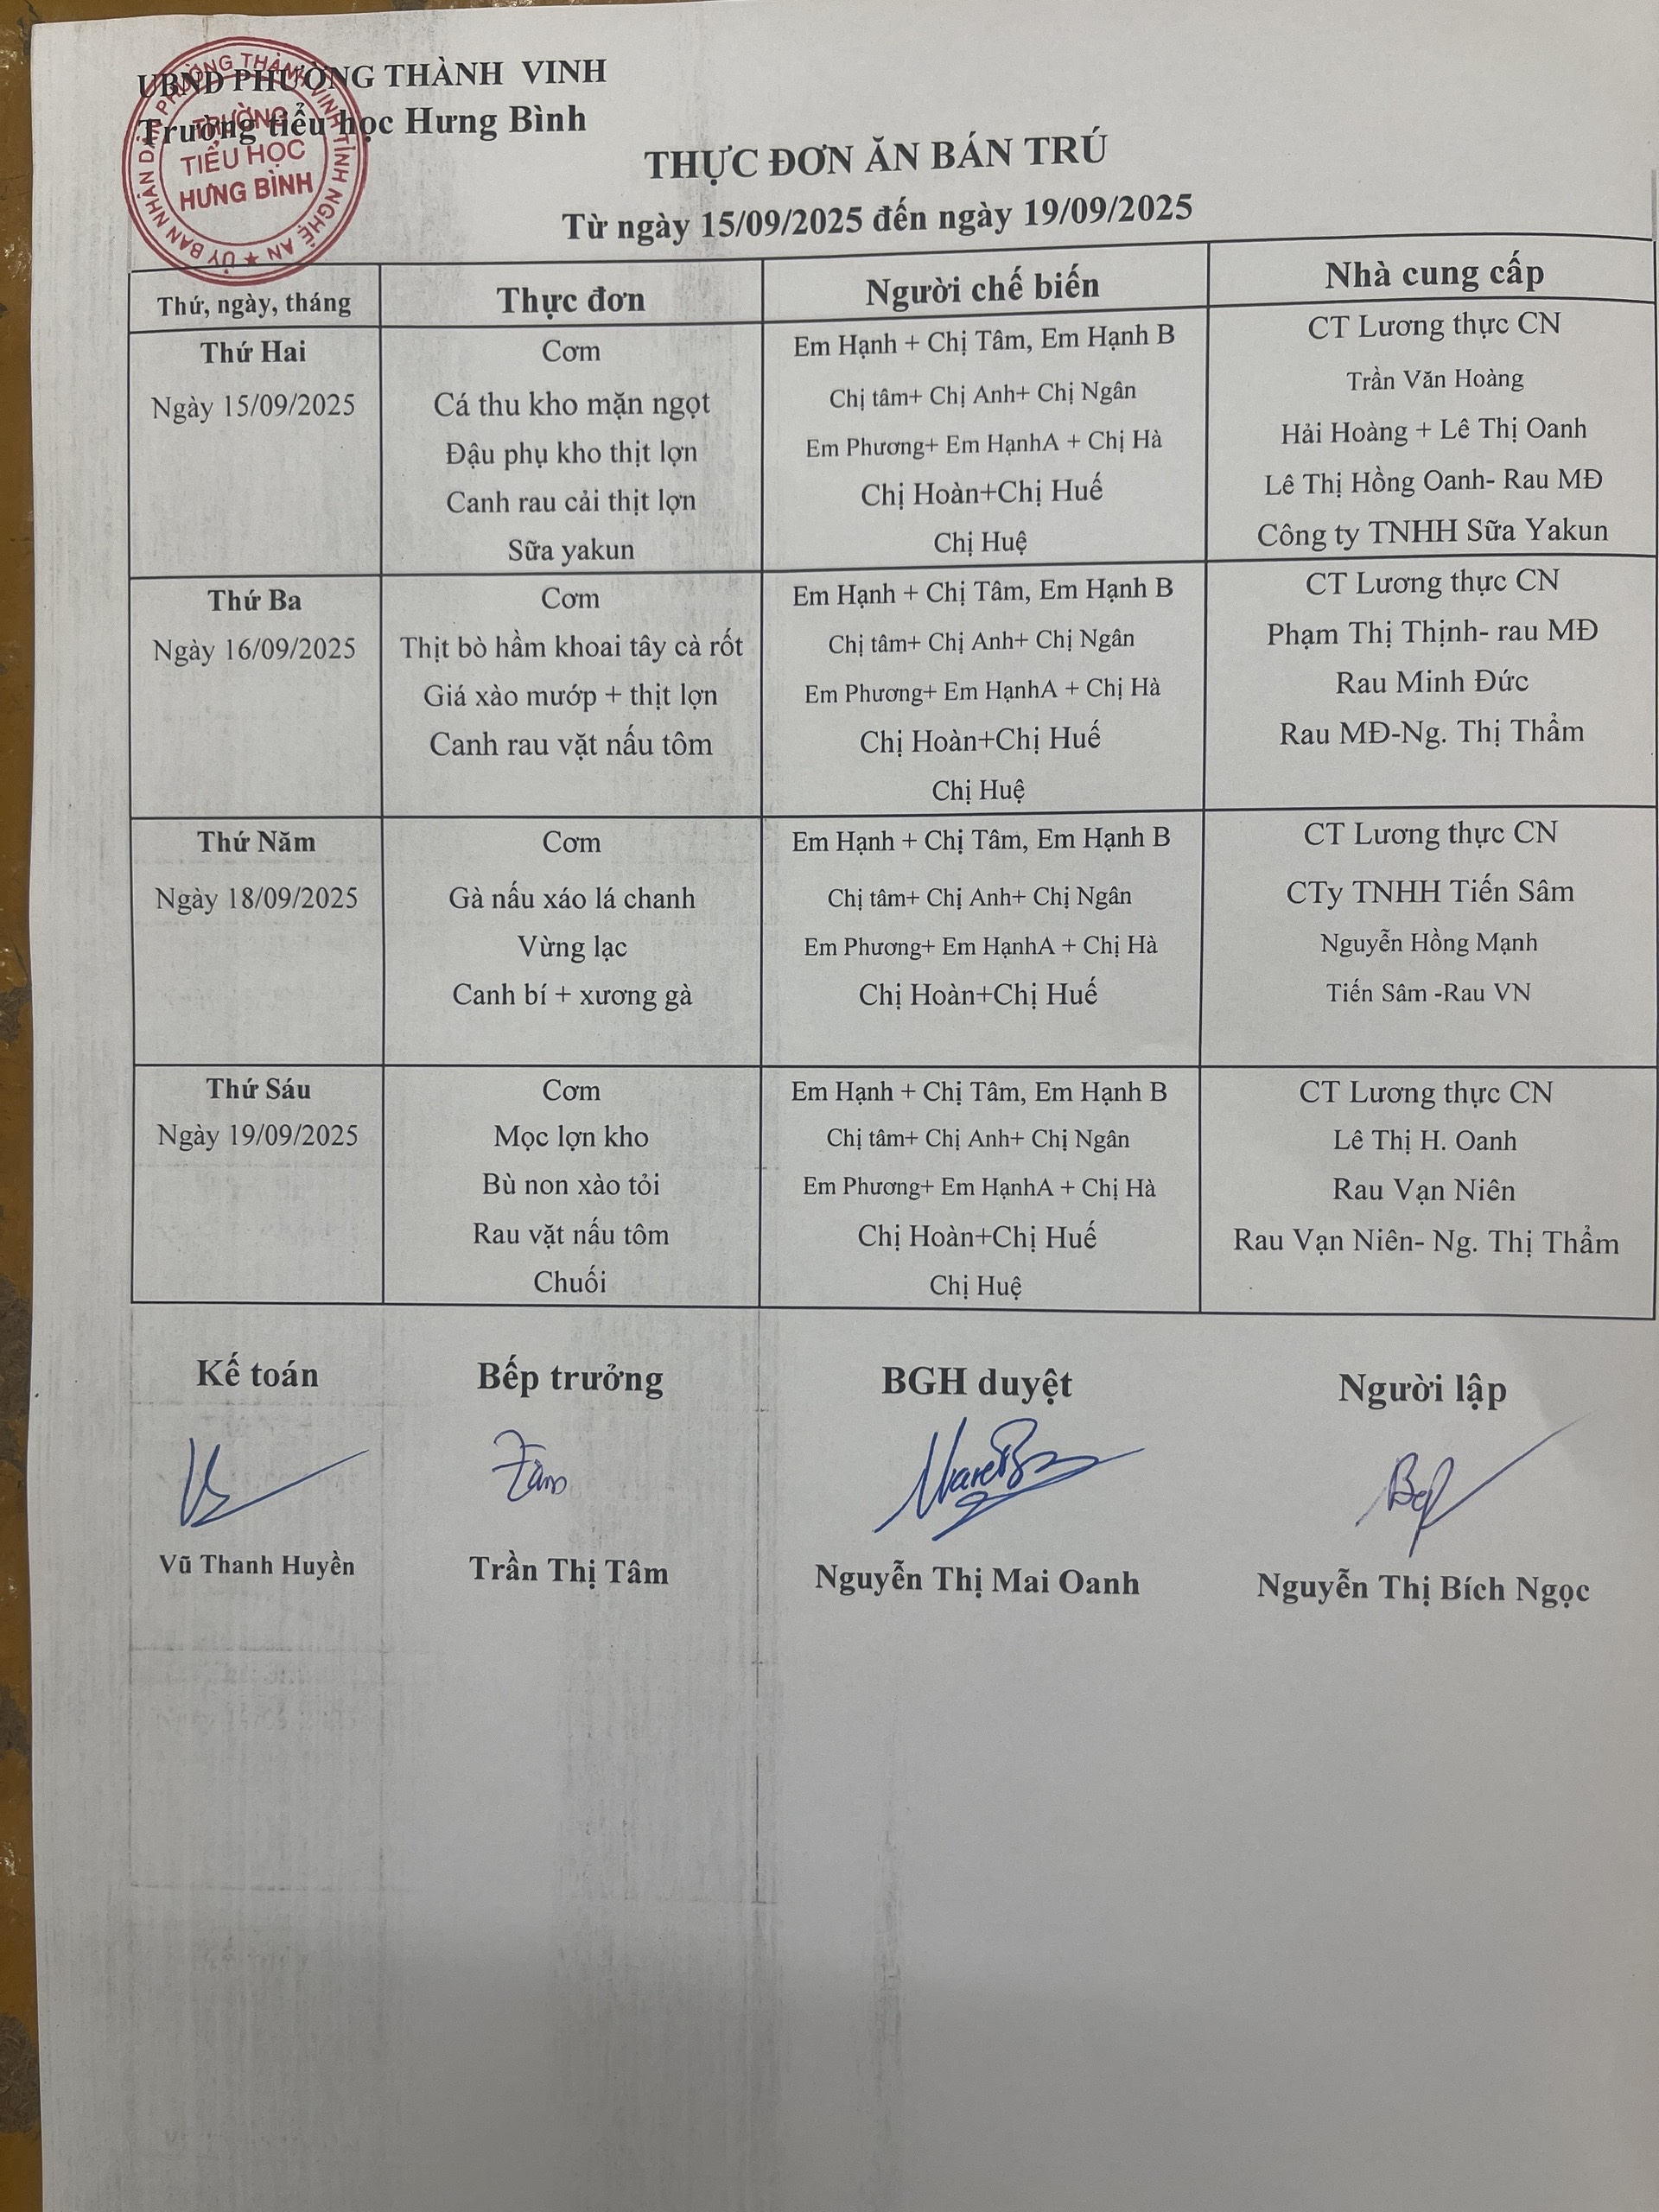 UBND PHƯỜNG THÀNH VINH
Trường tiểu học Hưng Bình
ỦY BAN NHÂN DÂN PHƯỜNG THÀNH VINH TỈNH NGHỆ AN ★
TRƯỜNG
TIỂU HỌC
HƯNG BÌNH
THỰC ĐƠN ĂN BÁN TRÚ
Từ ngày 15/09/2025 đến ngày 19/09/2025
Thứ, ngày, tháng Thực đơn Người chế biến Nhà cung cấp
Thứ Hai Cơm Em Hạnh + Chị Tâm, Em Hạnh B CT Lương thực CN
Ngày 15/09/2025 Cá thu kho mặn ngọt Chị tâm+ Chị Anh+ Chị Ngân Trần Văn Hoàng
Đậu phụ kho thịt lợn Em Phương+ Em HạnhA + Chị Hà Hải Hoàng + Lê Thị Oanh
Canh rau cải thịt lợn Chị Hoàn+Chị Huế Lê Thị Hồng Oanh- Rau MĐ
Sữa yakun Chị Huệ Công ty TNHH Sữa Yakun
Thứ Ba Cơm Em Hạnh + Chị Tâm, Em Hạnh B CT Lương thực CN
Ngày 16/09/2025 Thịt bò hầm khoai tây cà rốt Chị tâm+ Chị Anh+ Chị Ngân Phạm Thị Thịnh- rau MĐ
Giá xào mướp + thịt lợn Em Phương+ Em HạnhA + Chị Hà Rau Minh Đức
Canh rau vặt nấu tôm Chị Hoàn+Chị Huế Rau MĐ-Ng. Thị Thẩm
Chị Huệ
Thứ Năm Cơm Em Hạnh + Chị Tâm, Em Hạnh B CT Lương thực CN
Ngày 18/09/2025 Gà nấu xáo lá chanh Chị tâm+ Chị Anh+ Chị Ngân CTy TNHH Tiến Sâm
Vừng lạc Em Phương+ Em HạnhA + Chị Hà Nguyễn Hồng Mạnh
Canh bí + xương gà Chị Hoàn+Chị Huế Tiến Sâm -Rau VN
Thứ Sáu Cơm Em Hạnh + Chị Tâm, Em Hạnh B CT Lương thực CN
Ngày 19/09/2025 Mọc lợn kho Chị tâm+ Chị Anh+ Chị Ngân Lê Thị H. Oanh
Bù non xào tỏi Em Phương+ Em HạnhA + Chị Hà Rau Vạn Niên
Rau vặt nấu tôm Chị Hoàn+Chị Huế Rau Vạn Niên- Ng. Thị Thẩm
Chuối Chị Huệ
Kế toán Bếp trưởng BGH duyệt Người lập
Vũ Thanh Huyền Trần Thị Tâm Nguyễn Thị Mai Oanh Nguyễn Thị Bích Ngọc